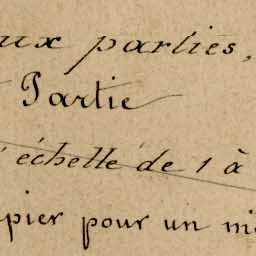 aux parties,
Partie
échelle de 1 à
pier pour un